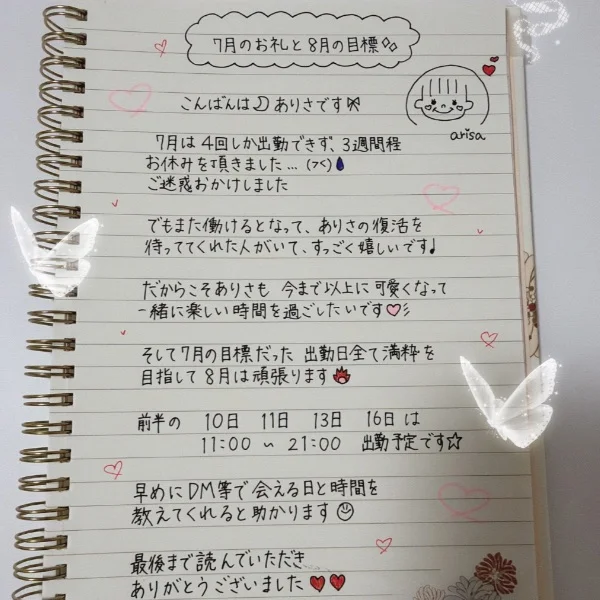 7月のお礼と8月の目標
arisa
こんばんは ありさです
7月は4回しか出勤できず、3週間程
お休みを頂きました…(つく)
ご迷惑おかけしました
でもまた働けるとなって、ありさの復活を
待っててくれた人がいて、すっごく嬉しいです♩
だからこそありさも 今まで以上に可愛くなって
一緒に楽しい時間を過ごしたいです♡
そして7月の目標だった 出勤日全て満粋を
目指して8月は頑張ります
前半の 10日 11日 13日 16日は
11:00 ~ 21:00 出勤予定です☆
早めにDM等で会える日と時間を
教えてくれると助かります☺
最後まで読んでいただき
ありがとうございました♥♥